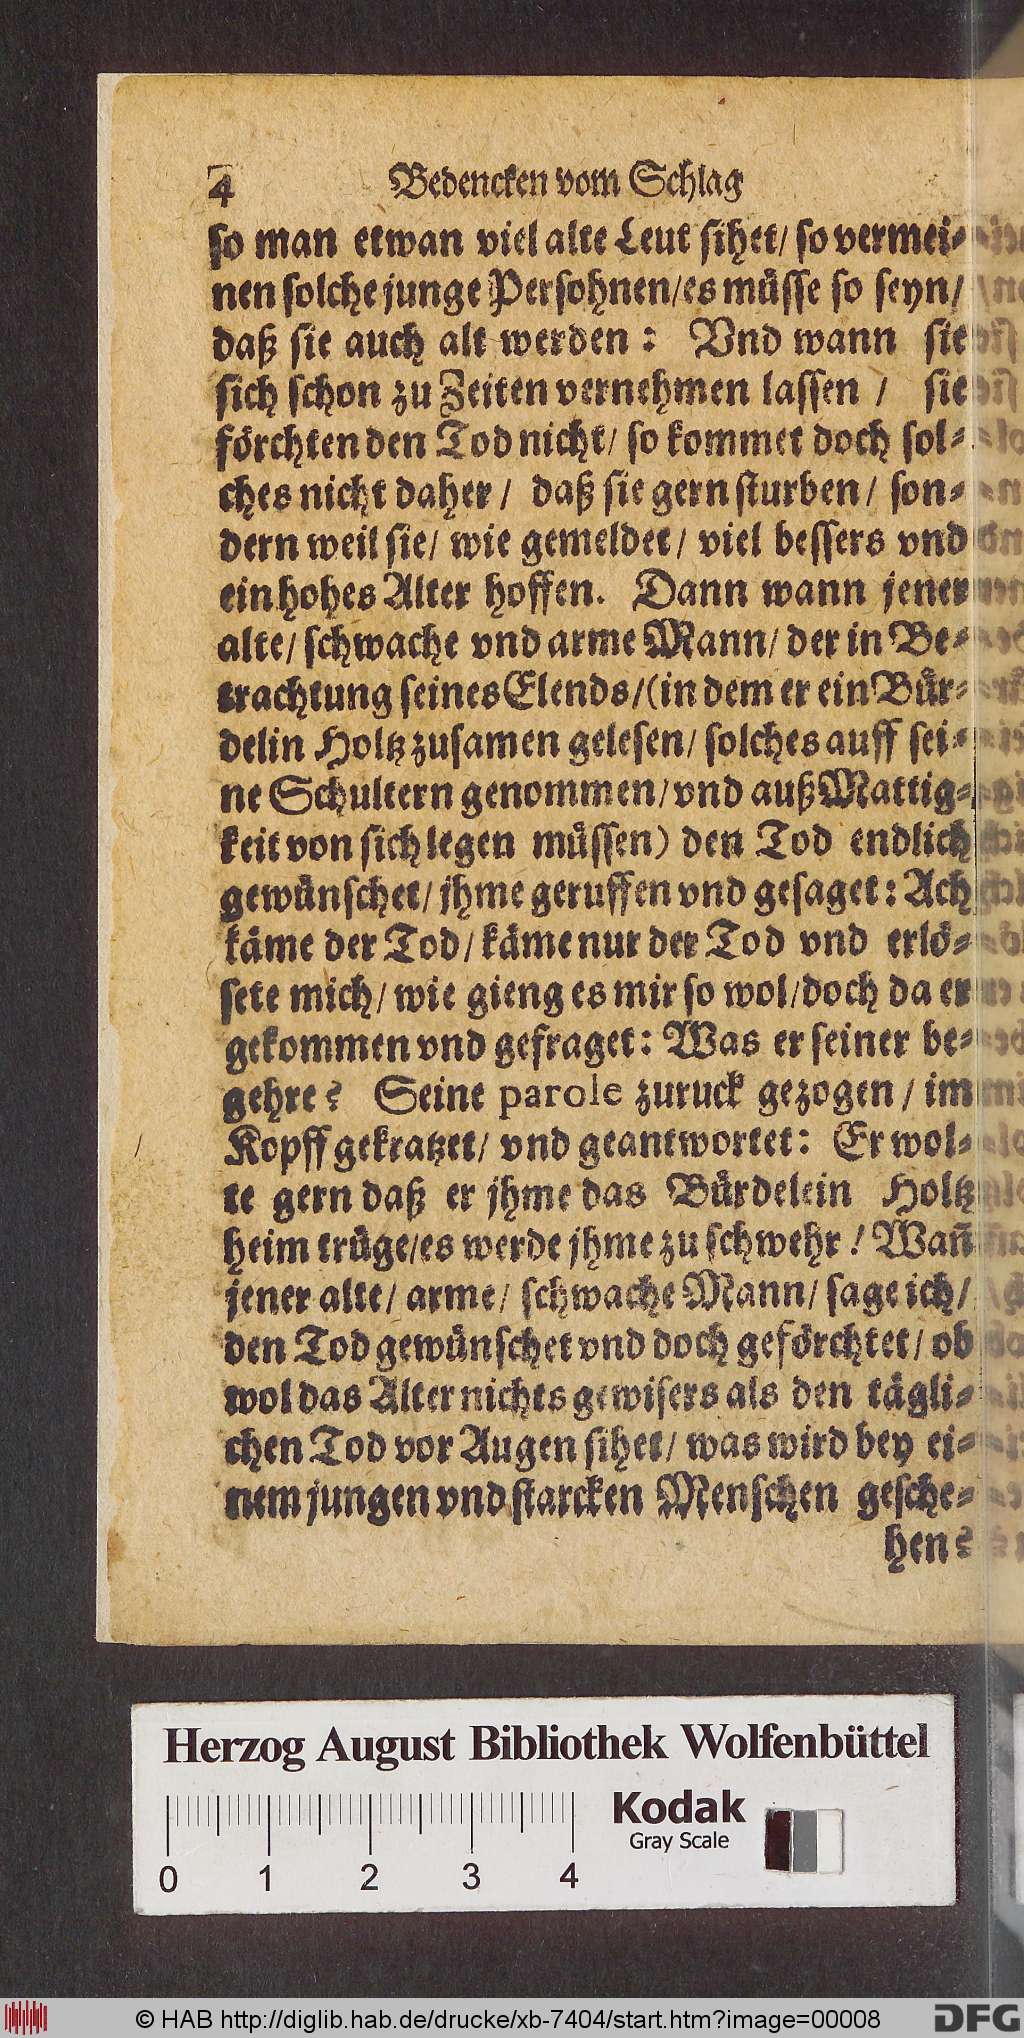 4 Bedencken vom Schlag
so man etwan viel alte Leut sihet/ so vermei-
nen solche junge Persohnen/ es müsse so seyn/
daß sie auch alt werden: Vnd wann sie
sich schon zu Zeiten vernehmen lassen / sie
förchten den Tod nicht/ so kommet doch sol-
ches nicht daher / daß sie gern sturben/ son-
dern weil sie/ wie gemeldet/ viel bessers vnd
ein hohes Alter hoffen. Dann wann jener
alte/ schwache vnd arme Mann/ der in Be-
trachtung seines Elends/ (in dem er ein Bür-
delin Holtz zusamen gelesen/ solches auff sei-
ne Schultern genommen/ vnd auß Mattig-
keit von sich legen müssen) den Tod endlich
gewünschet/ jhme geruffen vnd gesaget: Ach
käme der Tod/ käme nur der Tod vnd erlö-
sete mich/ wie gieng es mir so wol/ doch da er
gekommen vnd gefraget: Was er seiner be-
gehre? Seine parole zuruck gezogen / im
Kopff gekratzet/ vnd geantwortet: Er wol-
te gern daß er jhme das Bürdelein Holtz
heim trüge/ es werde jhme zu schwehr! Wañ
jener alte/ arme/ schwache Mann/ sage ich/
den Tod gewünschet vnd doch geförchtet/ ob
wol das Alter nichts gewisers als den tägli-
chen Tod vor Augen sihet/ was wird bey ei-
nem jungen vnd starcken Menschen gesche-
hen?
Herzog August Bibliothek Wolfenbüttel
Kodak
Gray Scale
0 1 2 3 4
© HAB http://diglib.hab.de/drucke/xb-7404/start.htm?image=00008
DFG